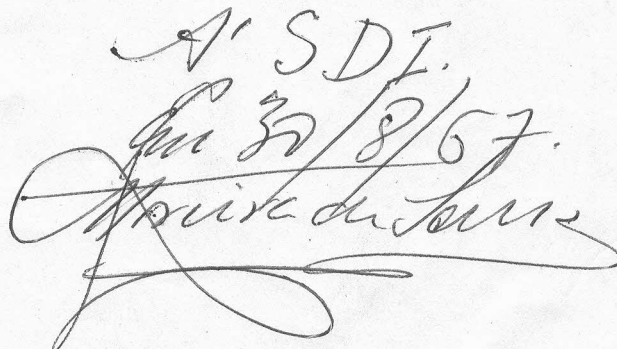 A' SDI.
Em 30/8/67.
Moreira de Souza